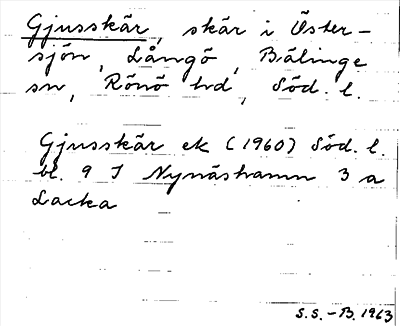 Gjusskär, skär i Öster-
sjön, Långö, Bälinge
sn, Rönö hd, Söd. l.
Gjusskär ek (1960) Söd. l.
bl. 9 I Nynäshamn 3 a
Lacka
S.S. - B. 1963